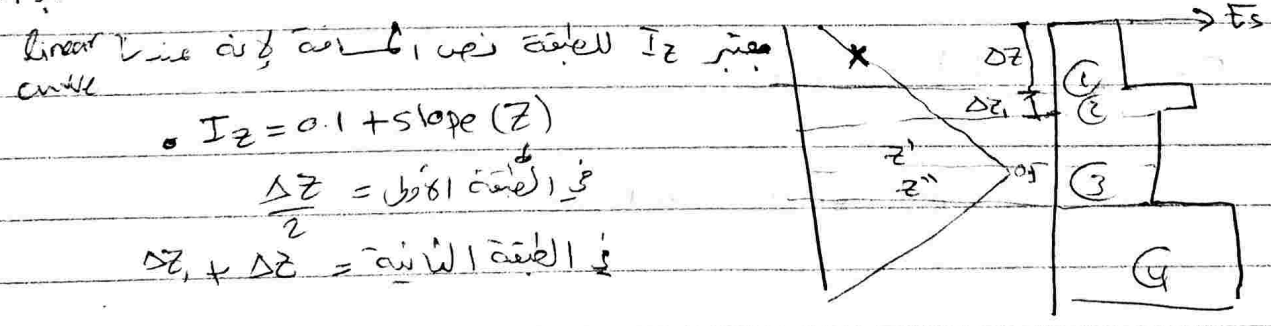 بعتبر Iz للطبقة نص المسافة لإنه عندنا linear
curve
• Iz = 0.1 + slope (Z)
في الطبقة الأولى = ΔZ/2
في الطبقة الثانية = ΔZ + ΔZ₁
Es
ΔZ
①
ΔZ₁
②
Z'
0.5
③
Z''
④